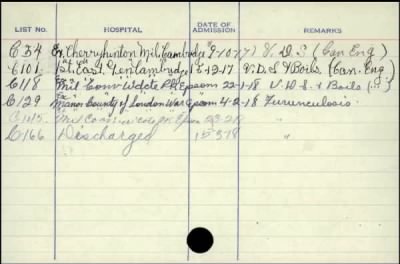 LIST No. HOSPITAL DATE OF ADMISSION REMARKS
C 34 Ex Cherryhinton Mil. Cambridge 9-10-17 V.D.S (Can. Eng)
C 101 1st East. Gen. Cambridge 1-12-17 V.D.S & Boils. (Can. Eng.)
C 118 Mil Conv Wdcte Pk Epsom 22-1-18 V.D.S. & Boils
C 129 Ex Manor County of London War Epsom 4-2-18 Furunculosis.
Mil Conv Epsom "
C 166 Discharged "